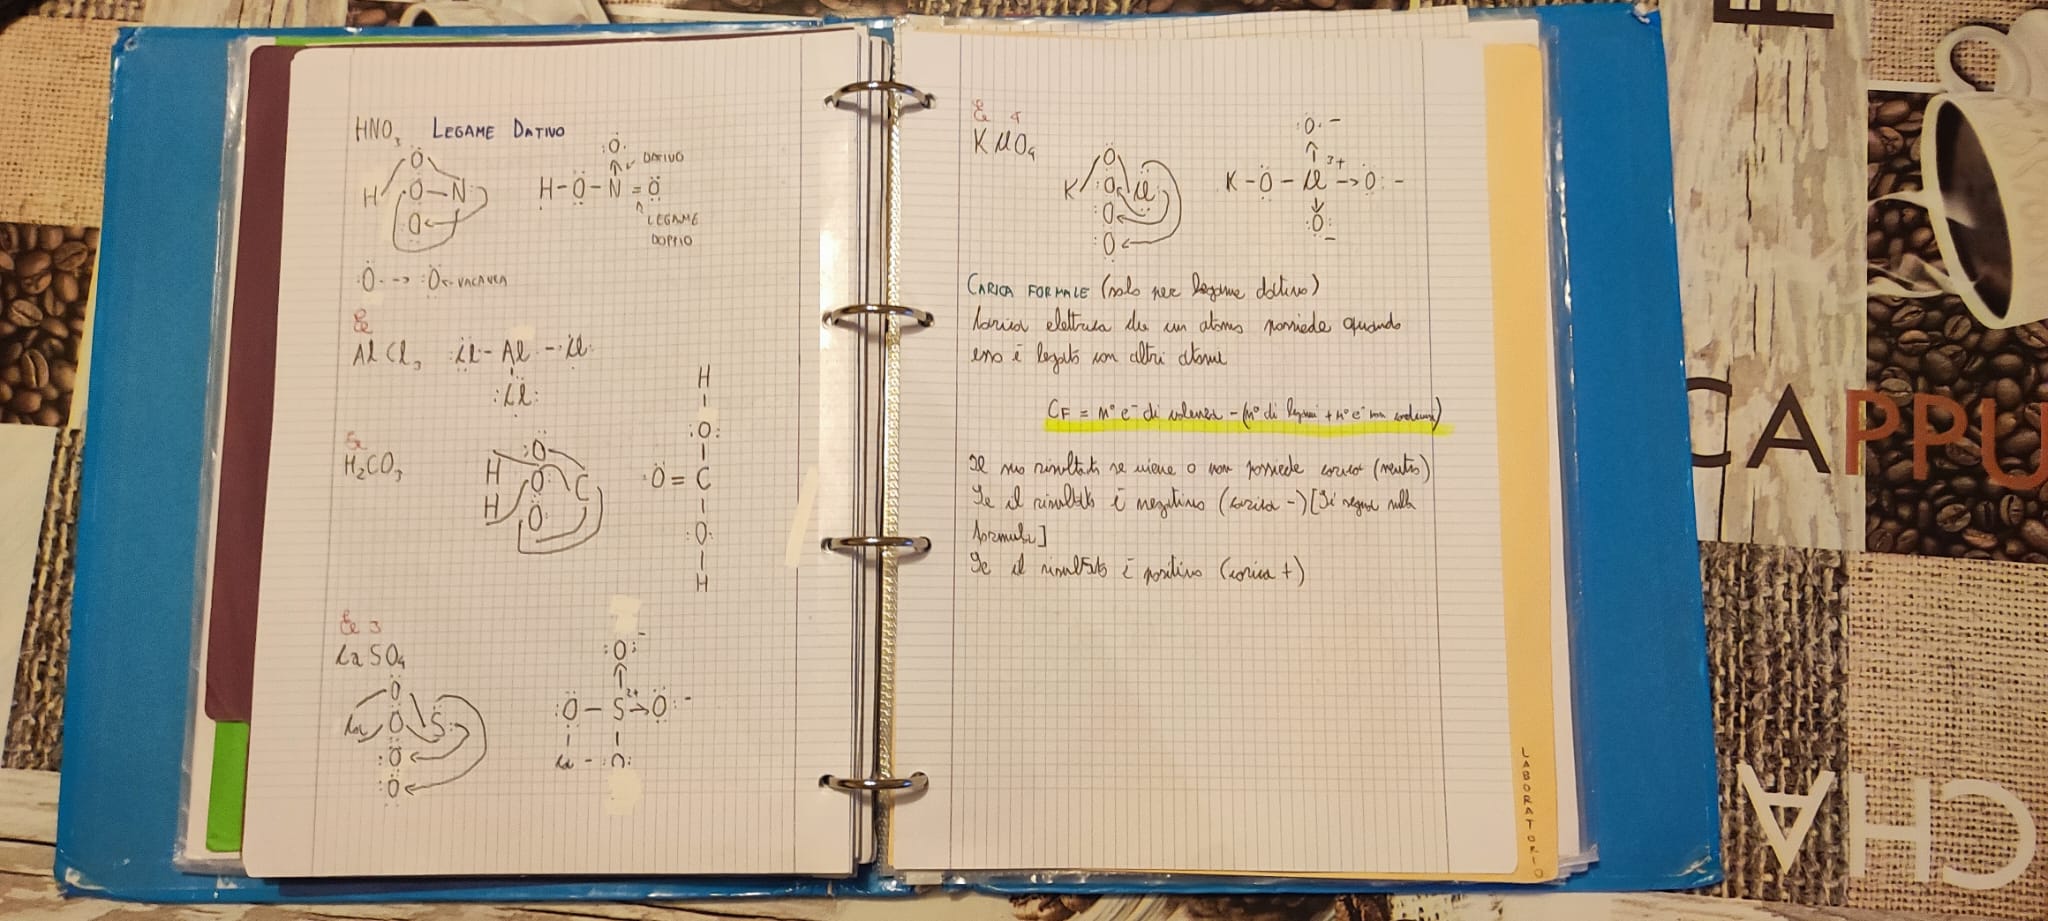 HNO3 LEGAME DATIVO
DATIVO
H-O-N=O
LEGAME
DOPPIO
VACANZA
Es
AlCl3 Cl-Al-Cl
Cl
Es
H2CO3
H
O
O=C
O
H
Es 3
CaSO4
O-
O-S2+→O-
Ca-O
Es 4
KClO4
O-
K-O-Cl3+→O-
O-
CARICA FORMALE (solo per legame dativo)
Carica elettrica che un atomo possiede quando
esso è legato con altri atomi
CF = n° e- di valenza - (n° di legami + n° e- non condivisi)
Il suo risultato se viene 0 non possiede carica (neutro)
Se il risultato è negativo (carica -) [Si segna nella
formula]
Se il risultato è positivo (carica +)
LABORATORIO
CAPPU
CHA